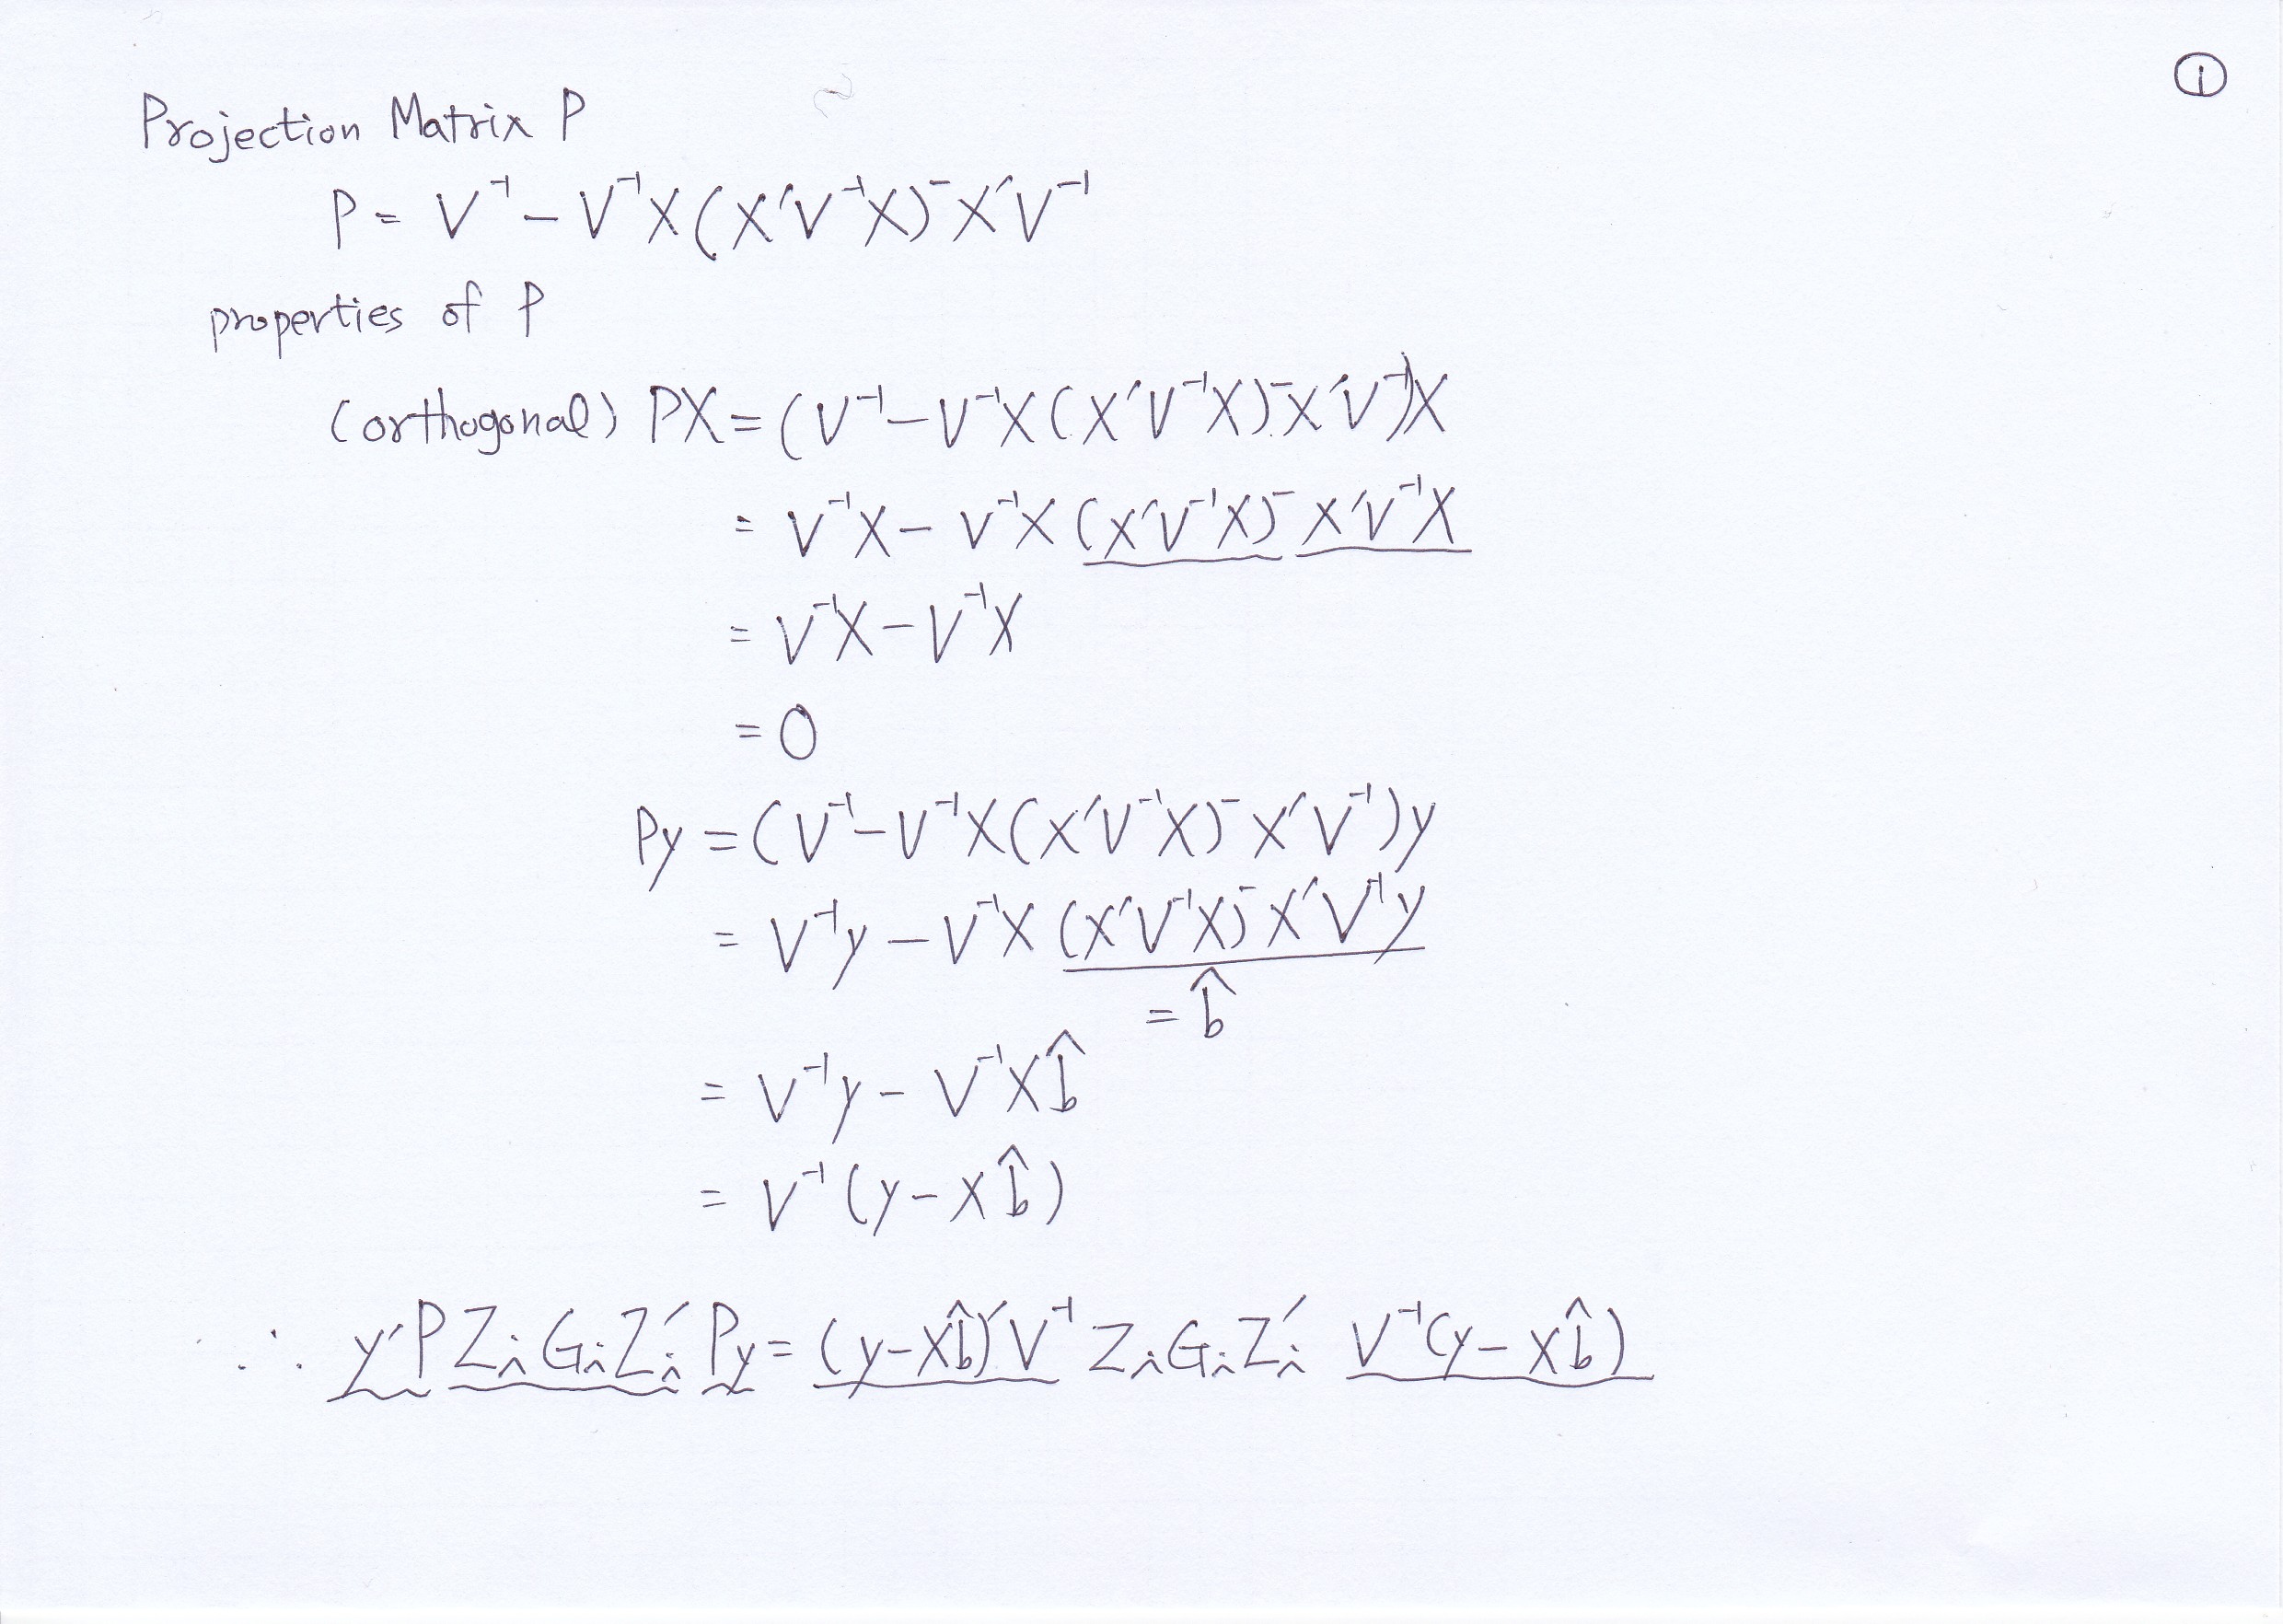 ①
Projection Matrix P
P = V⁻¹ − V⁻¹X(X′V⁻¹X)⁻X′V⁻¹
properties of P
(orthogonal) PX = (V⁻¹ − V⁻¹X(X′V⁻¹X)⁻X′V⁻¹)X
= V⁻¹X − V⁻¹X (X′V⁻¹X)⁻ X′V⁻¹X
= V⁻¹X − V⁻¹X
= 0
Py = (V⁻¹ − V⁻¹X(X′V⁻¹X)⁻X′V⁻¹)y
= V⁻¹y − V⁻¹X (X′V⁻¹X)⁻X′V⁻¹y
= b̂
= V⁻¹y − V⁻¹Xb̂
= V⁻¹(y − Xb̂)
∴ y′PZᵢGᵢZᵢ′Py = (y − Xb̂)′V⁻¹ZᵢGᵢZᵢ′ V⁻¹(y − Xb̂)